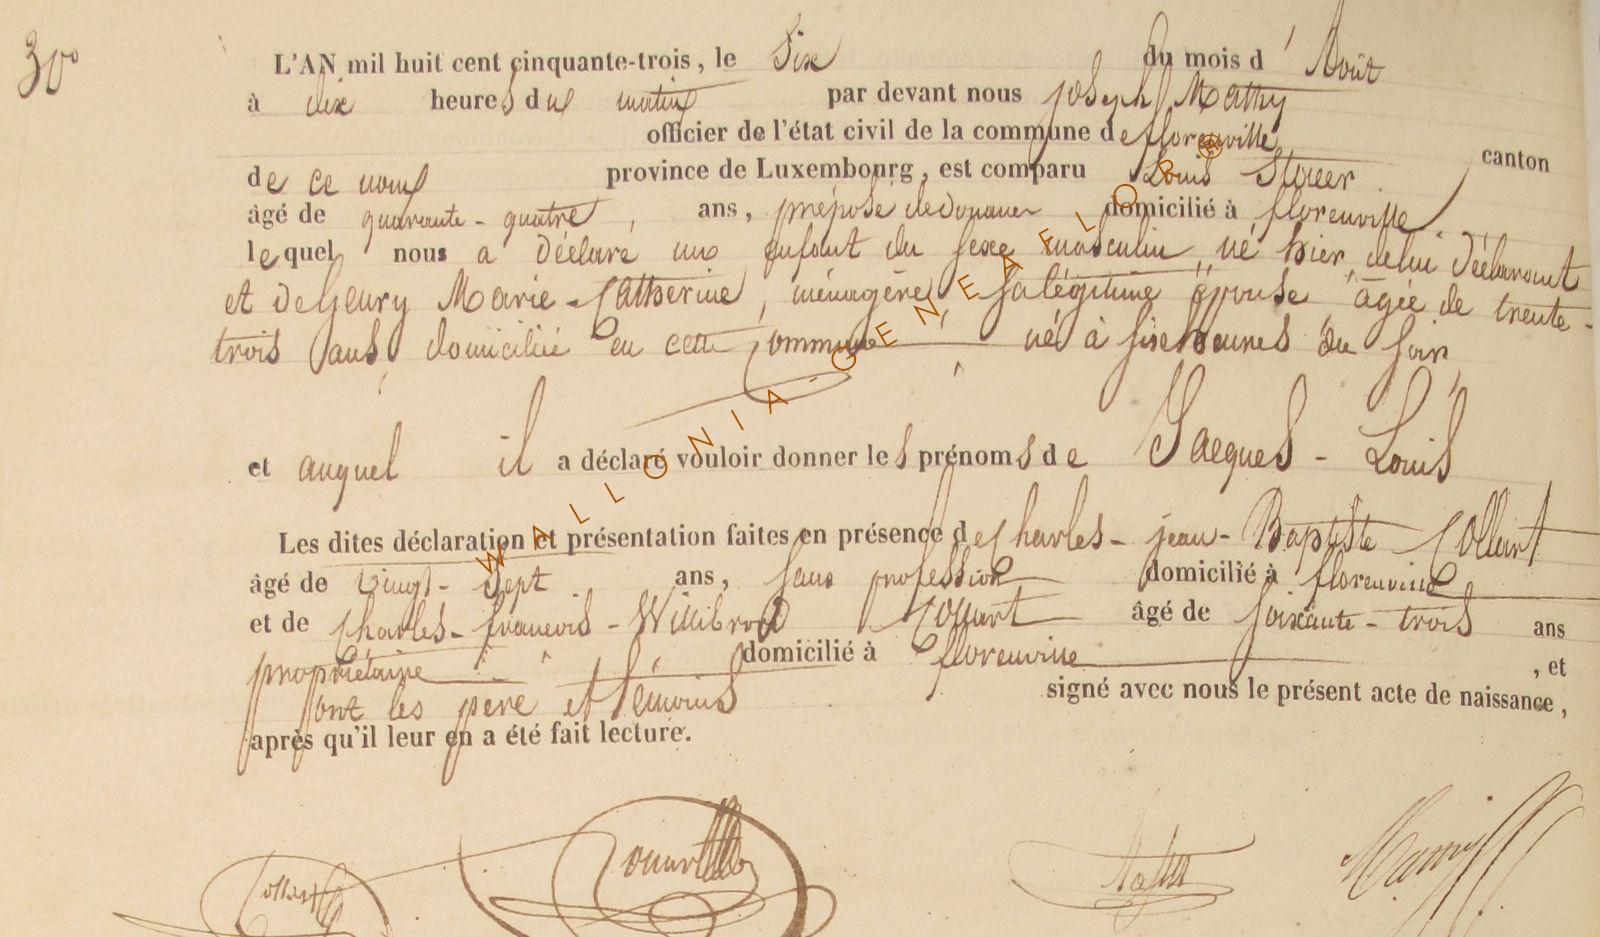 30
L'AN mil huit cent cinquante-trois, le Six du mois d' Août
à dix heures du matin par devant nous Joseph Mathy
officier de l'état civil de la commune de florenville
canton
de ce nom province de Luxembourg, est comparu Louis
âgé de quarante-quatre ans, préposé de Douanes domicilié à florenville
lequel nous a Déclaré un enfant du sexe masculin né hier, de lui Déclarant
et de henry Marie-Catherine, ménagère sa légitime épouse âgée de trente-
trois ans domiciliée en cette Commune né à six heures du soir,
et auquel il a déclaré vouloir donner les prénoms de Jacques-Louis
Les dites déclaration et présentation faites en présence de Charles-jean-Baptiste Collart
âgé de vingt-sept ans, sans profession domicilié à florenville
et de Charles-françois-Willibrord Collart âgé de soixante-trois ans
propriétaire domicilié à florenville, et
ont les père et témoins signé avec nous le présent acte de naissance,
après qu'il leur en a été fait lecture.
WALLONIA-GENEAFLOR®